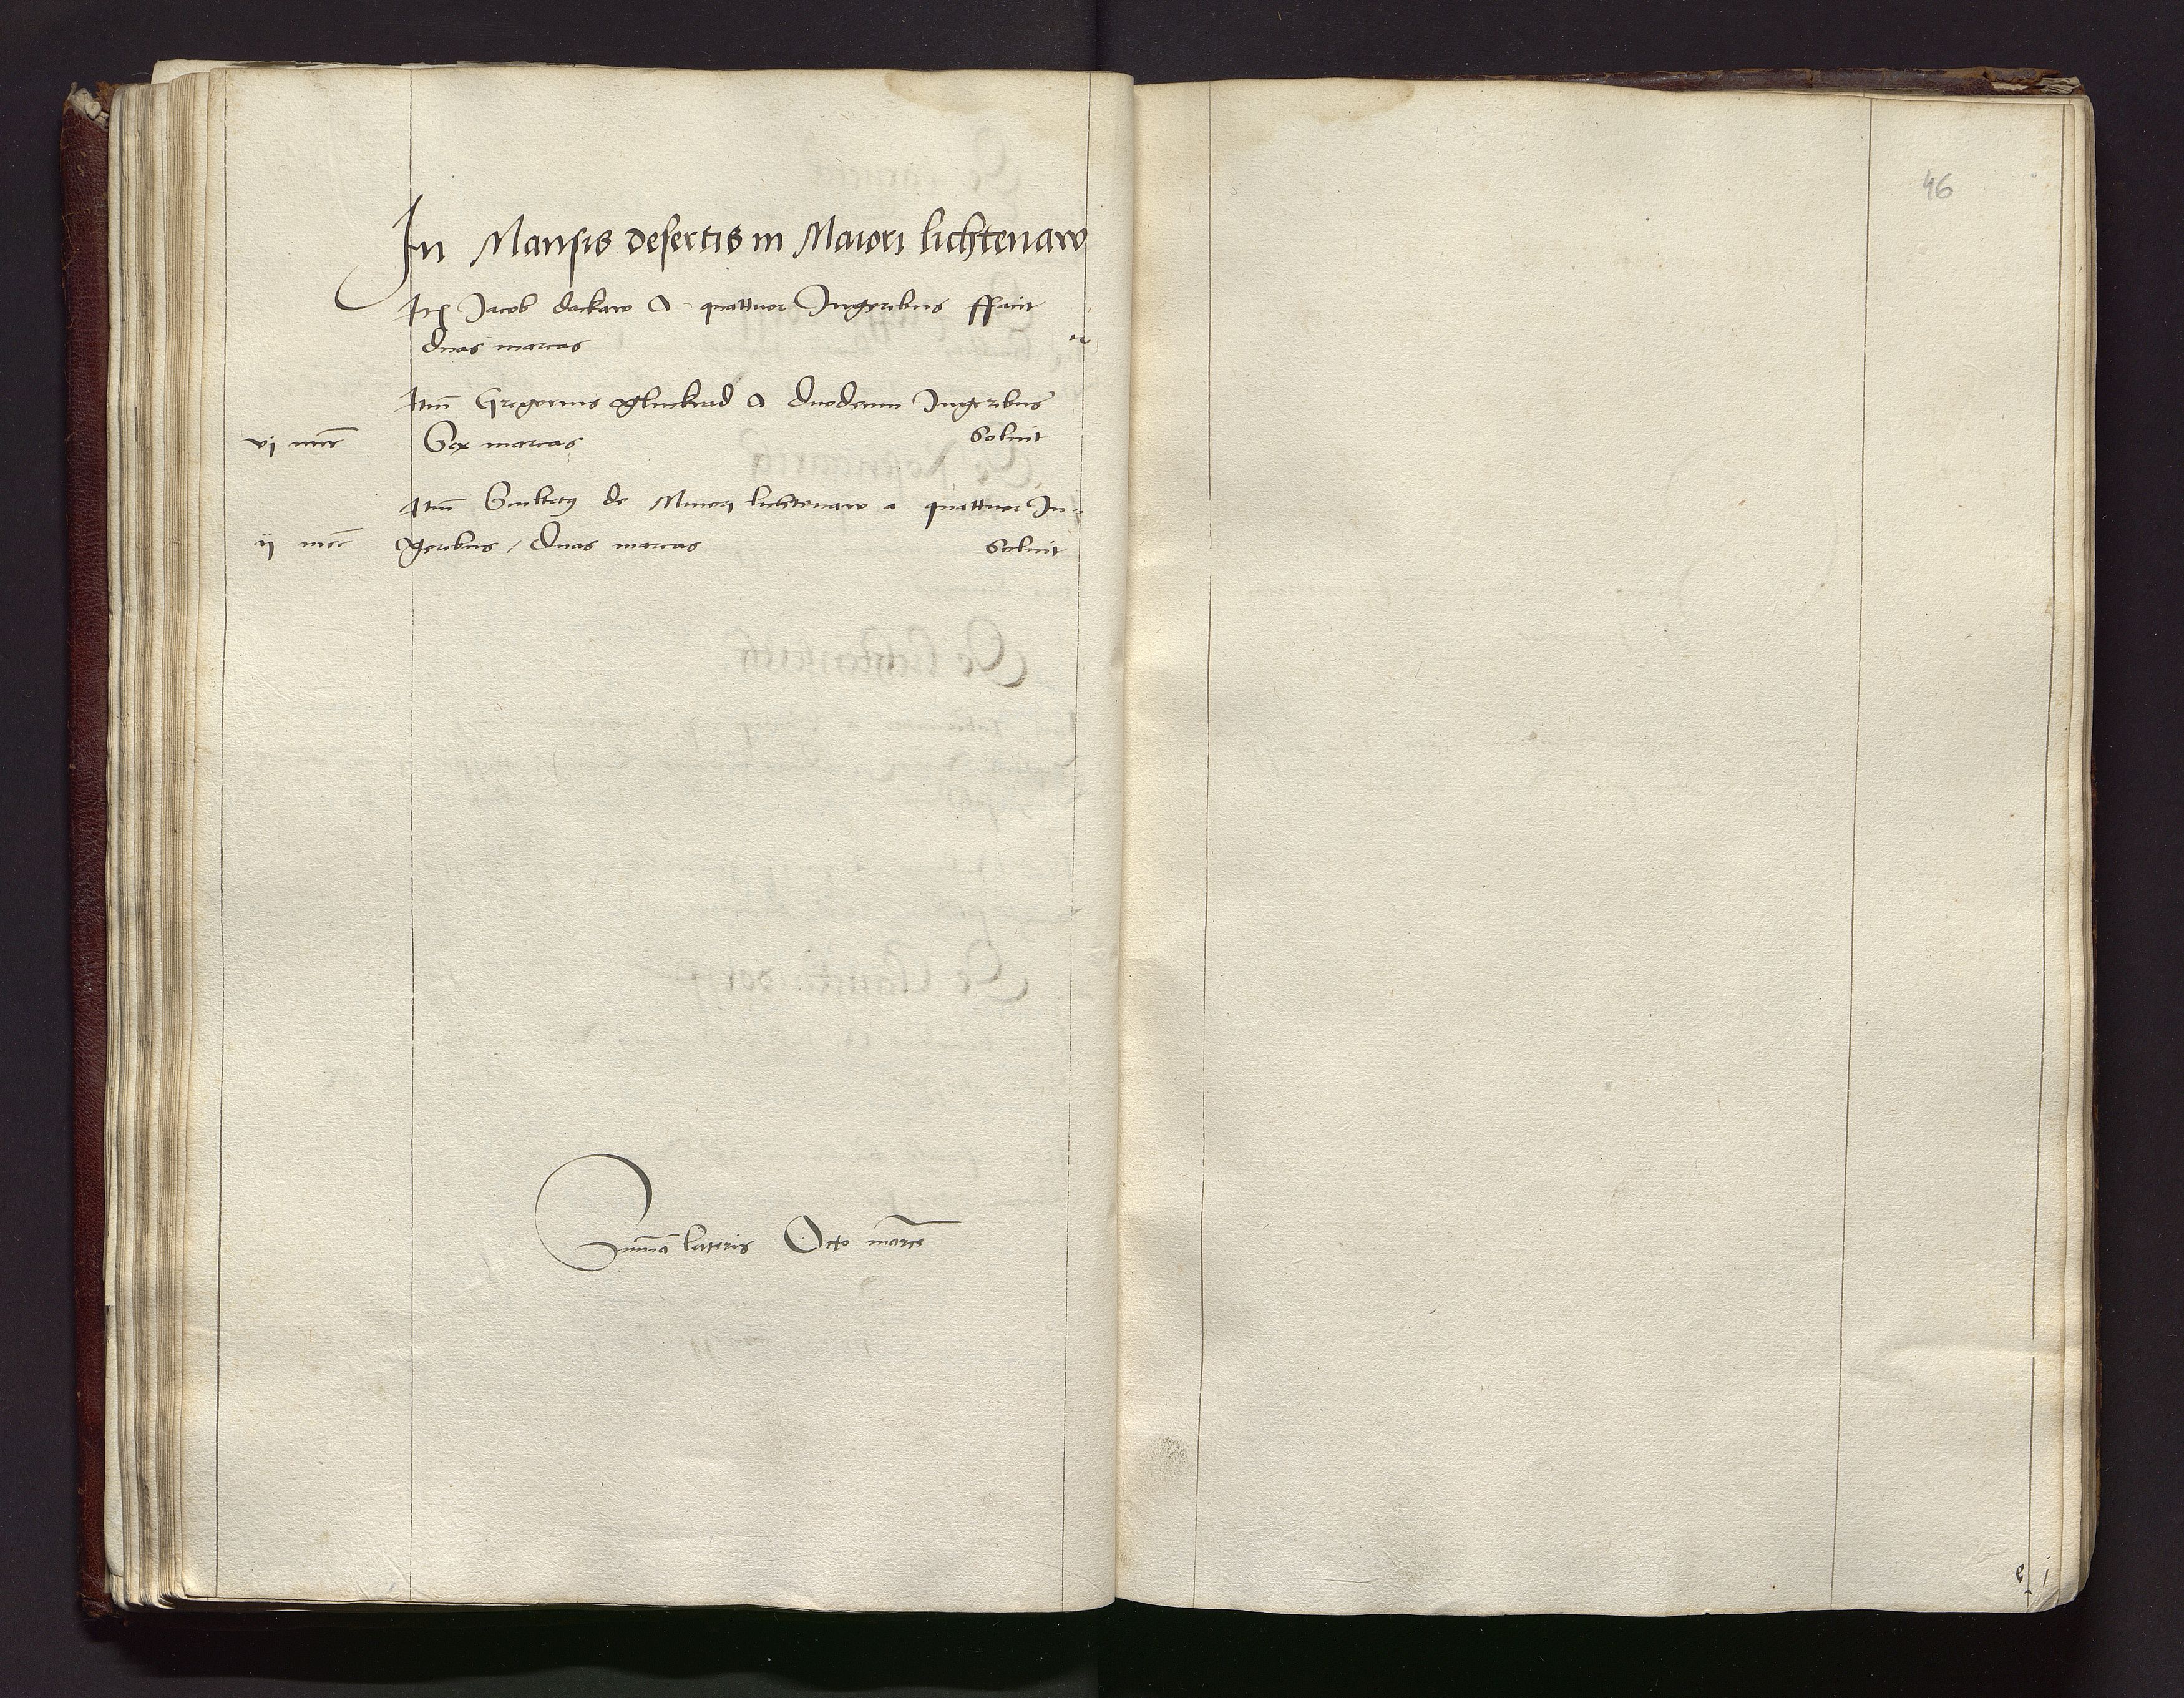 46
In Mansis desertis in Maiori lichtenaw
Jacob dackaw A quattuor Jugeribus
duas marcas
Itm̄ Gregorius A duodecim Jugeribus
vi mr̄c Sex marcas Soluit
Itm̄ de Minori lichtenaw a quattuor Ju-
ii mr̄c geribus / duas marcas Soluit
Sum̄a lateris Octo marce
e j